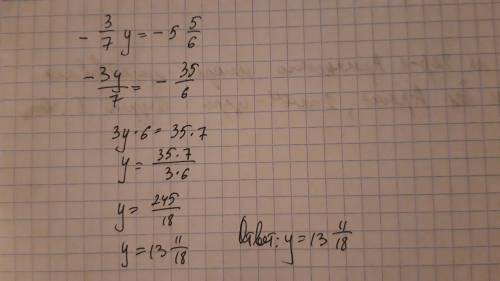 - 3/7 y = - 5 5/6
- 3y/7 = - 35/6
3y · 6 = 35 · 7
y = 35·7/3·6
y = 245/18
y = 13 11/18
Ответ: y = 13 11/18